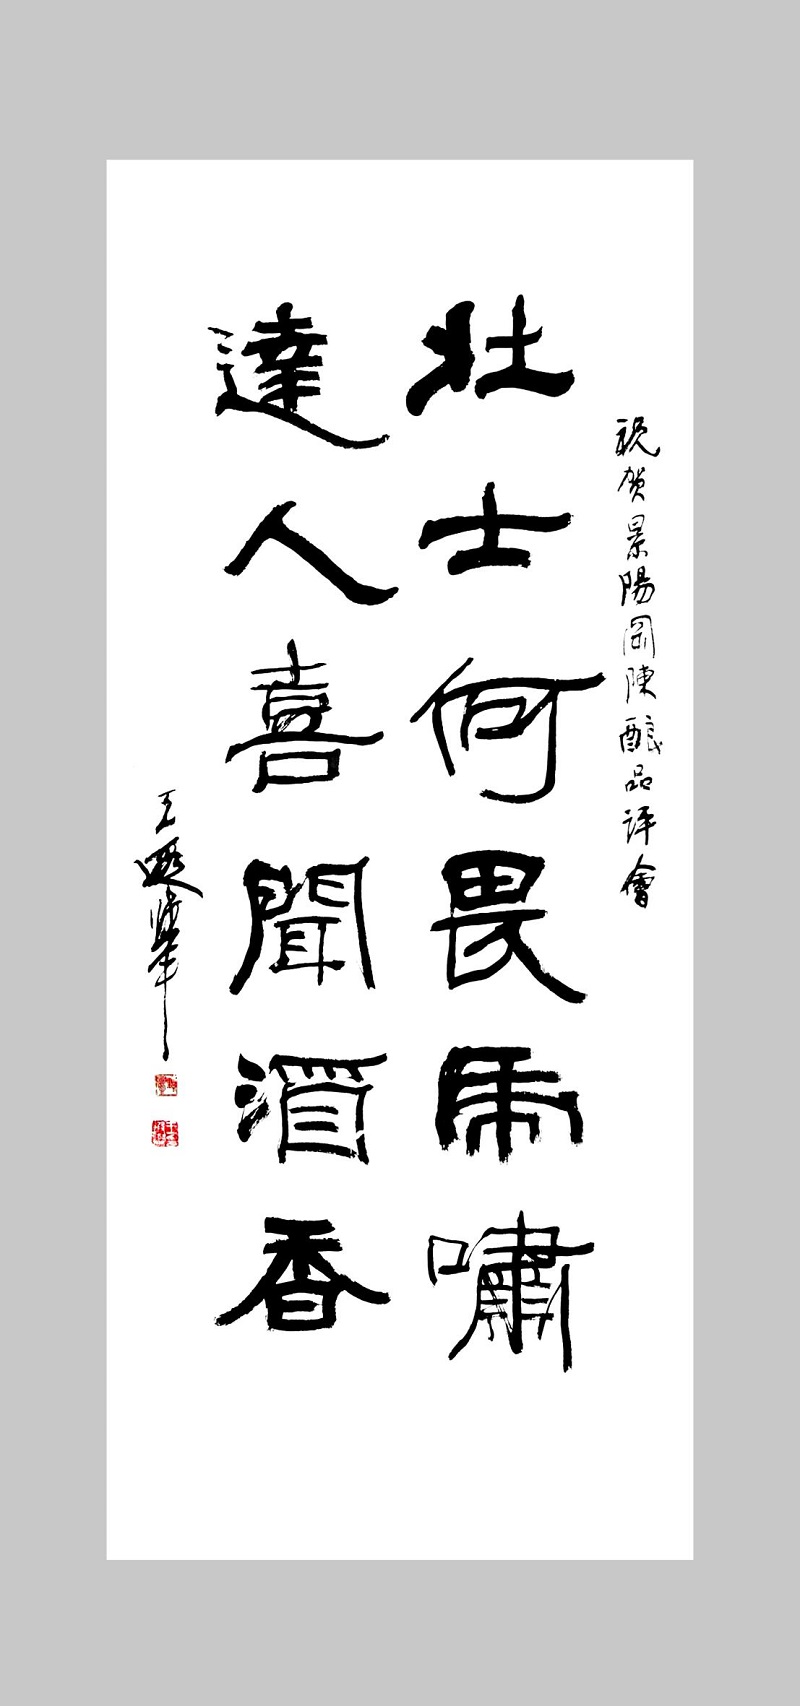 祝贺景陽岡陳酿品评會
壮士何畏虎嘯
達人喜聞酒香
王